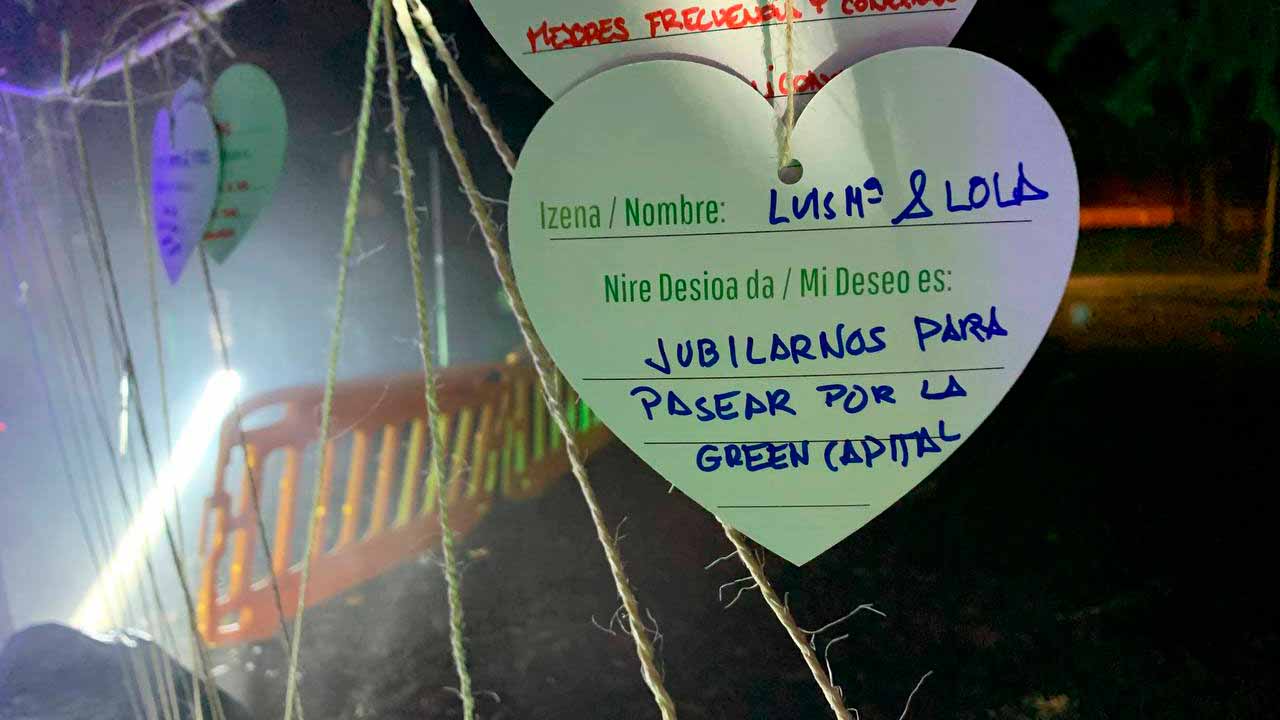 MEJORES FRECUENCIA Y
Izena / Nombre: LUIS Mª & LOLA
Nire Desioa da / Mi Deseo es:
JUBILARNOS PARA
PASEAR POR LA
GREEN CAPITAL